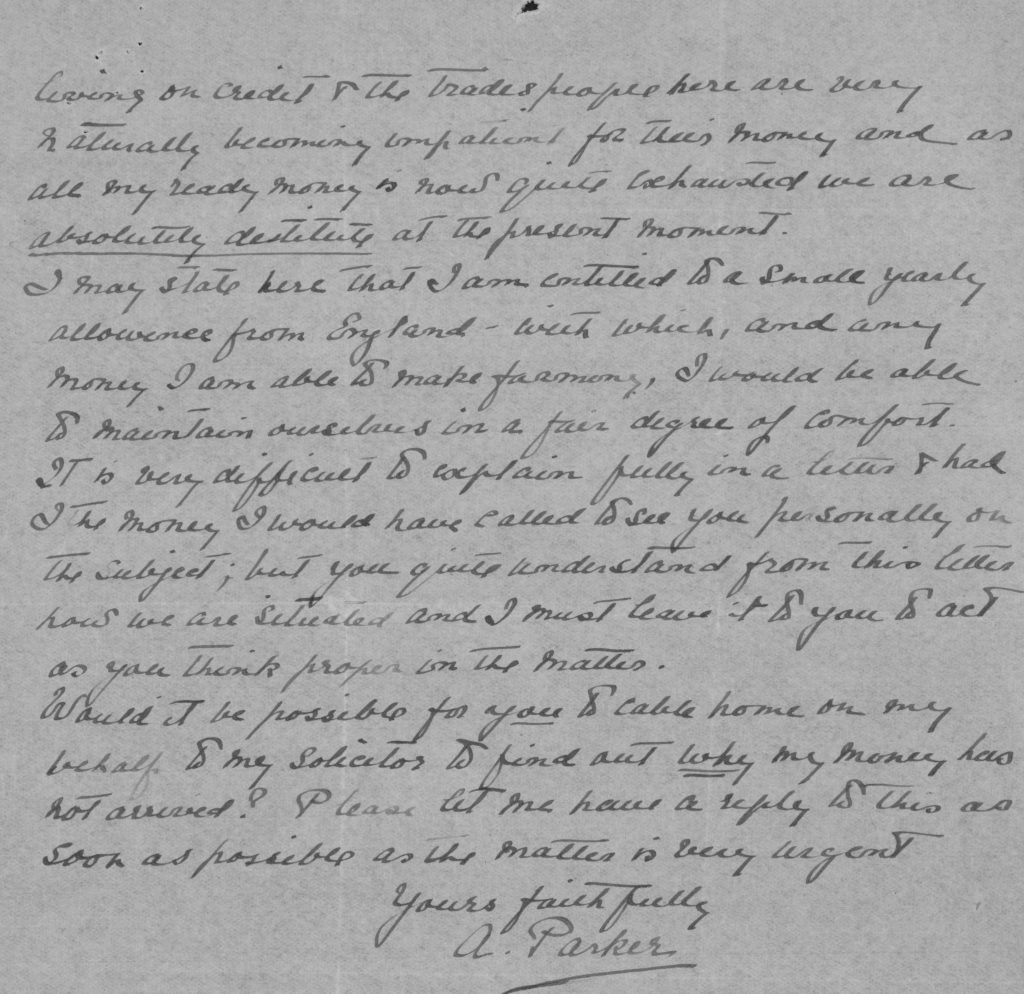 living on credit & the tradespeople here are very
naturally becoming impatient for their money and as
all my ready money is now quite exhausted we are
absolutely destitute at the present moment.
I may state here that I am entitled to a small yearly
allowence from England - with which, and any
money I am able to make farming, I would be able
to maintain ourselves in a fair degree of comfort.
It is very difficult to explain fully in a letter & had
I the money I would have called to see you personally on
the subject; but you quite understand from this letter
how we are situated and I must leave it to you to act
as you think proper in the matter.
Would it be possible for you to cable home on my
behalf to my solicitor to find out why my money has
not arrived? Please let me have a reply to this as
soon as possible as the matter is very urgent
Yours faithfully
A. Parker